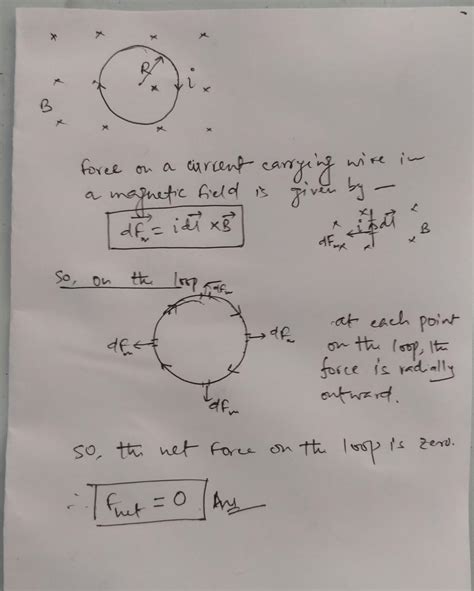 R
i
B
force on a current carrying wire in
a magnetic field is given by —
dF⃗ₘ = i dl⃗ × B⃗
i dl⃗
dFₘ
B
So, on the loop
dFₘ
dFₘ
dFₘ
dFₘ
at each point
on the loop, the
force is radially
outward.
So, the net force on the loop is zero.
∴ Fnet = 0 Ans